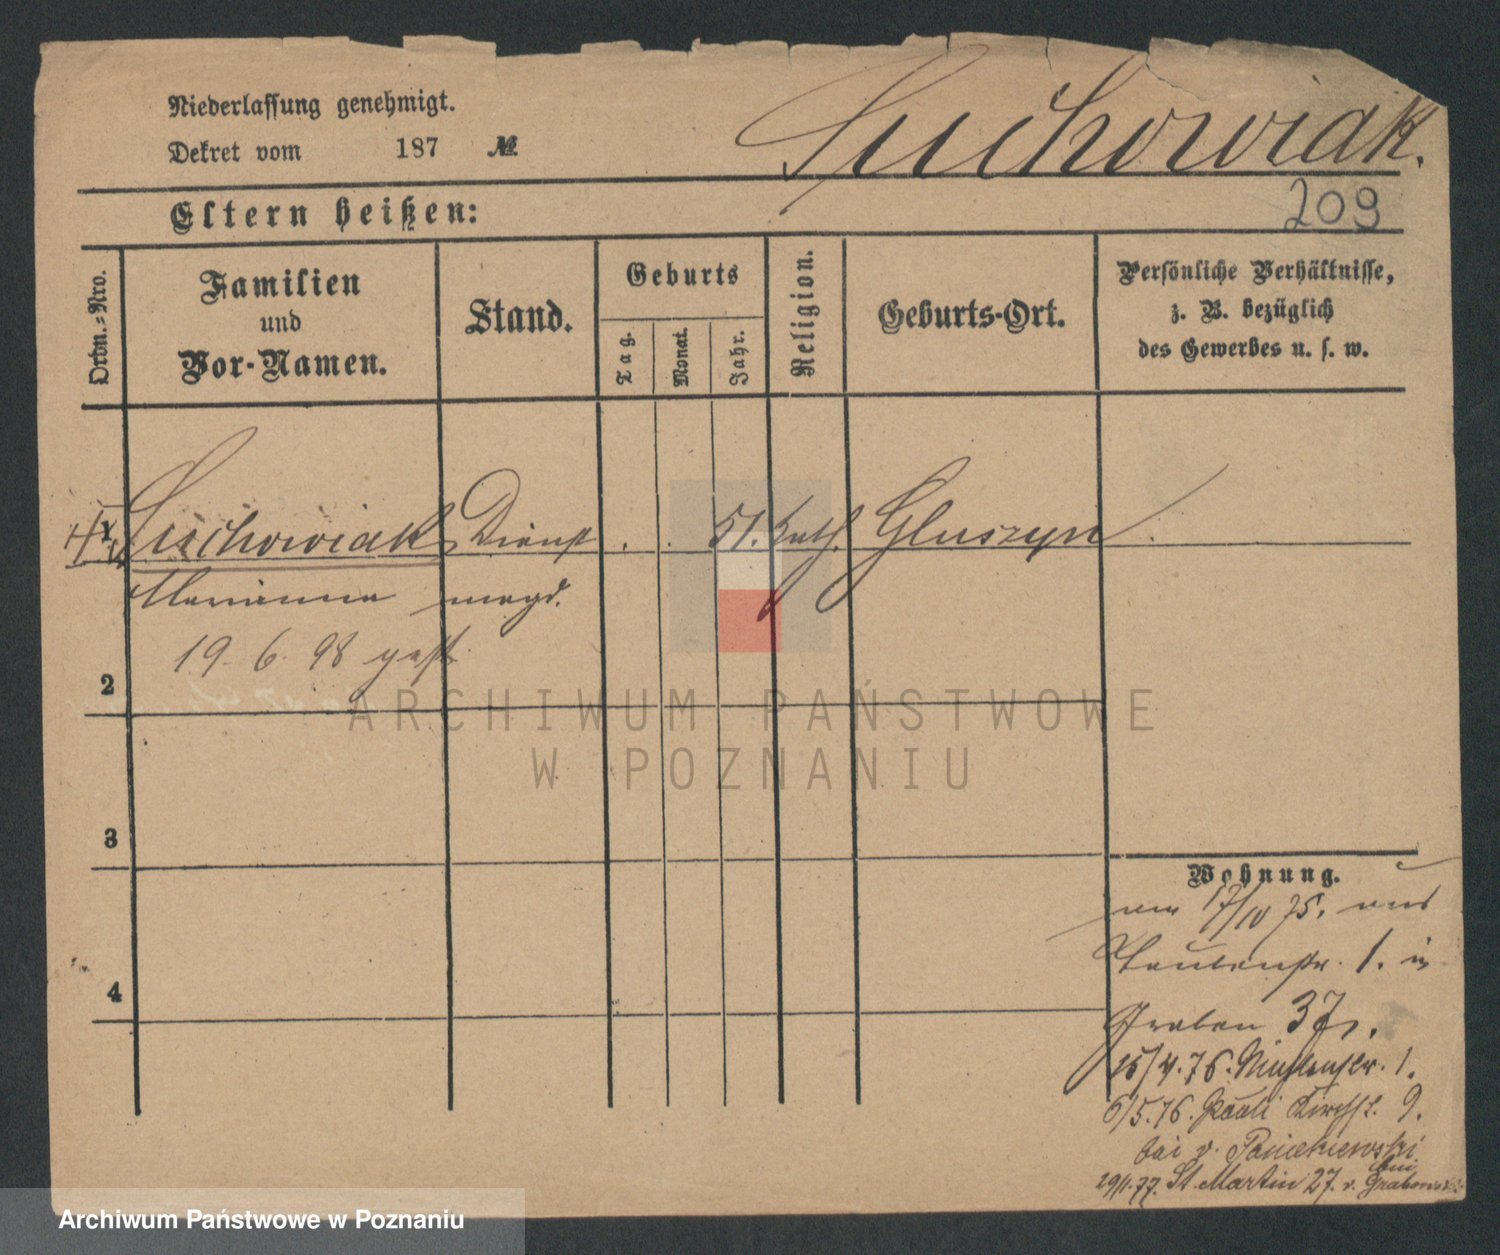 Niederlassung genehmigt.
Dekret vom 187 №
Suchowiak.
209
Eltern heißen:
Ordn.-Nro.
Familien
und
Vor-Namen.
Stand.
Geburts
Tag.
Monat.
Jahr.
Religion.
Geburts-Ort.
Persönliche Verhältnisse,
z. B. bezüglich
des Gewerbes u. s. w.
1 Suchowiak Dienst 51. kath. Gluszyn
Marianna magd.
19. 6. 98 gest.
2
3
4
Wohnung.
17/10 75. aus
1. in
Graben 37.
15/4.76. 1.
6/5.76. Pauli Kirchst. 9.
bei v.
29/1.77. St. Martin 27. v. bei
ARCHIWUM PAŃSTWOWE
W POZNANIU
Archiwum Państwowe w Poznaniu